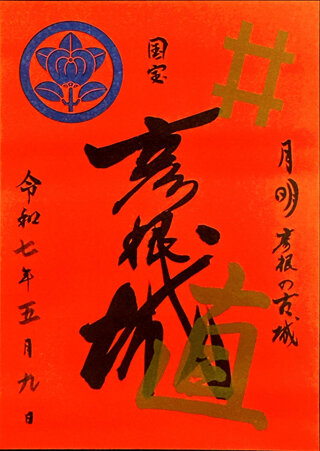 月明彦根の古城
国宝
彦根城
井
直
令和七年五月九日